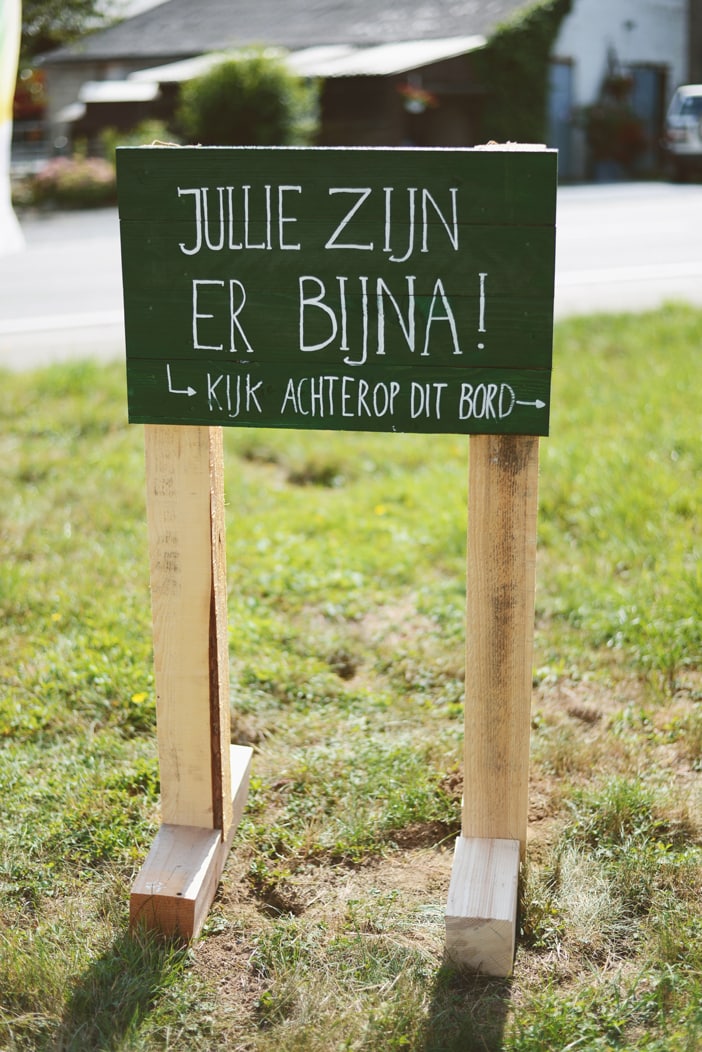 JULLIE ZIJN
ER BIJNA!
↳ KIJK ACHTEROP DIT BORD →